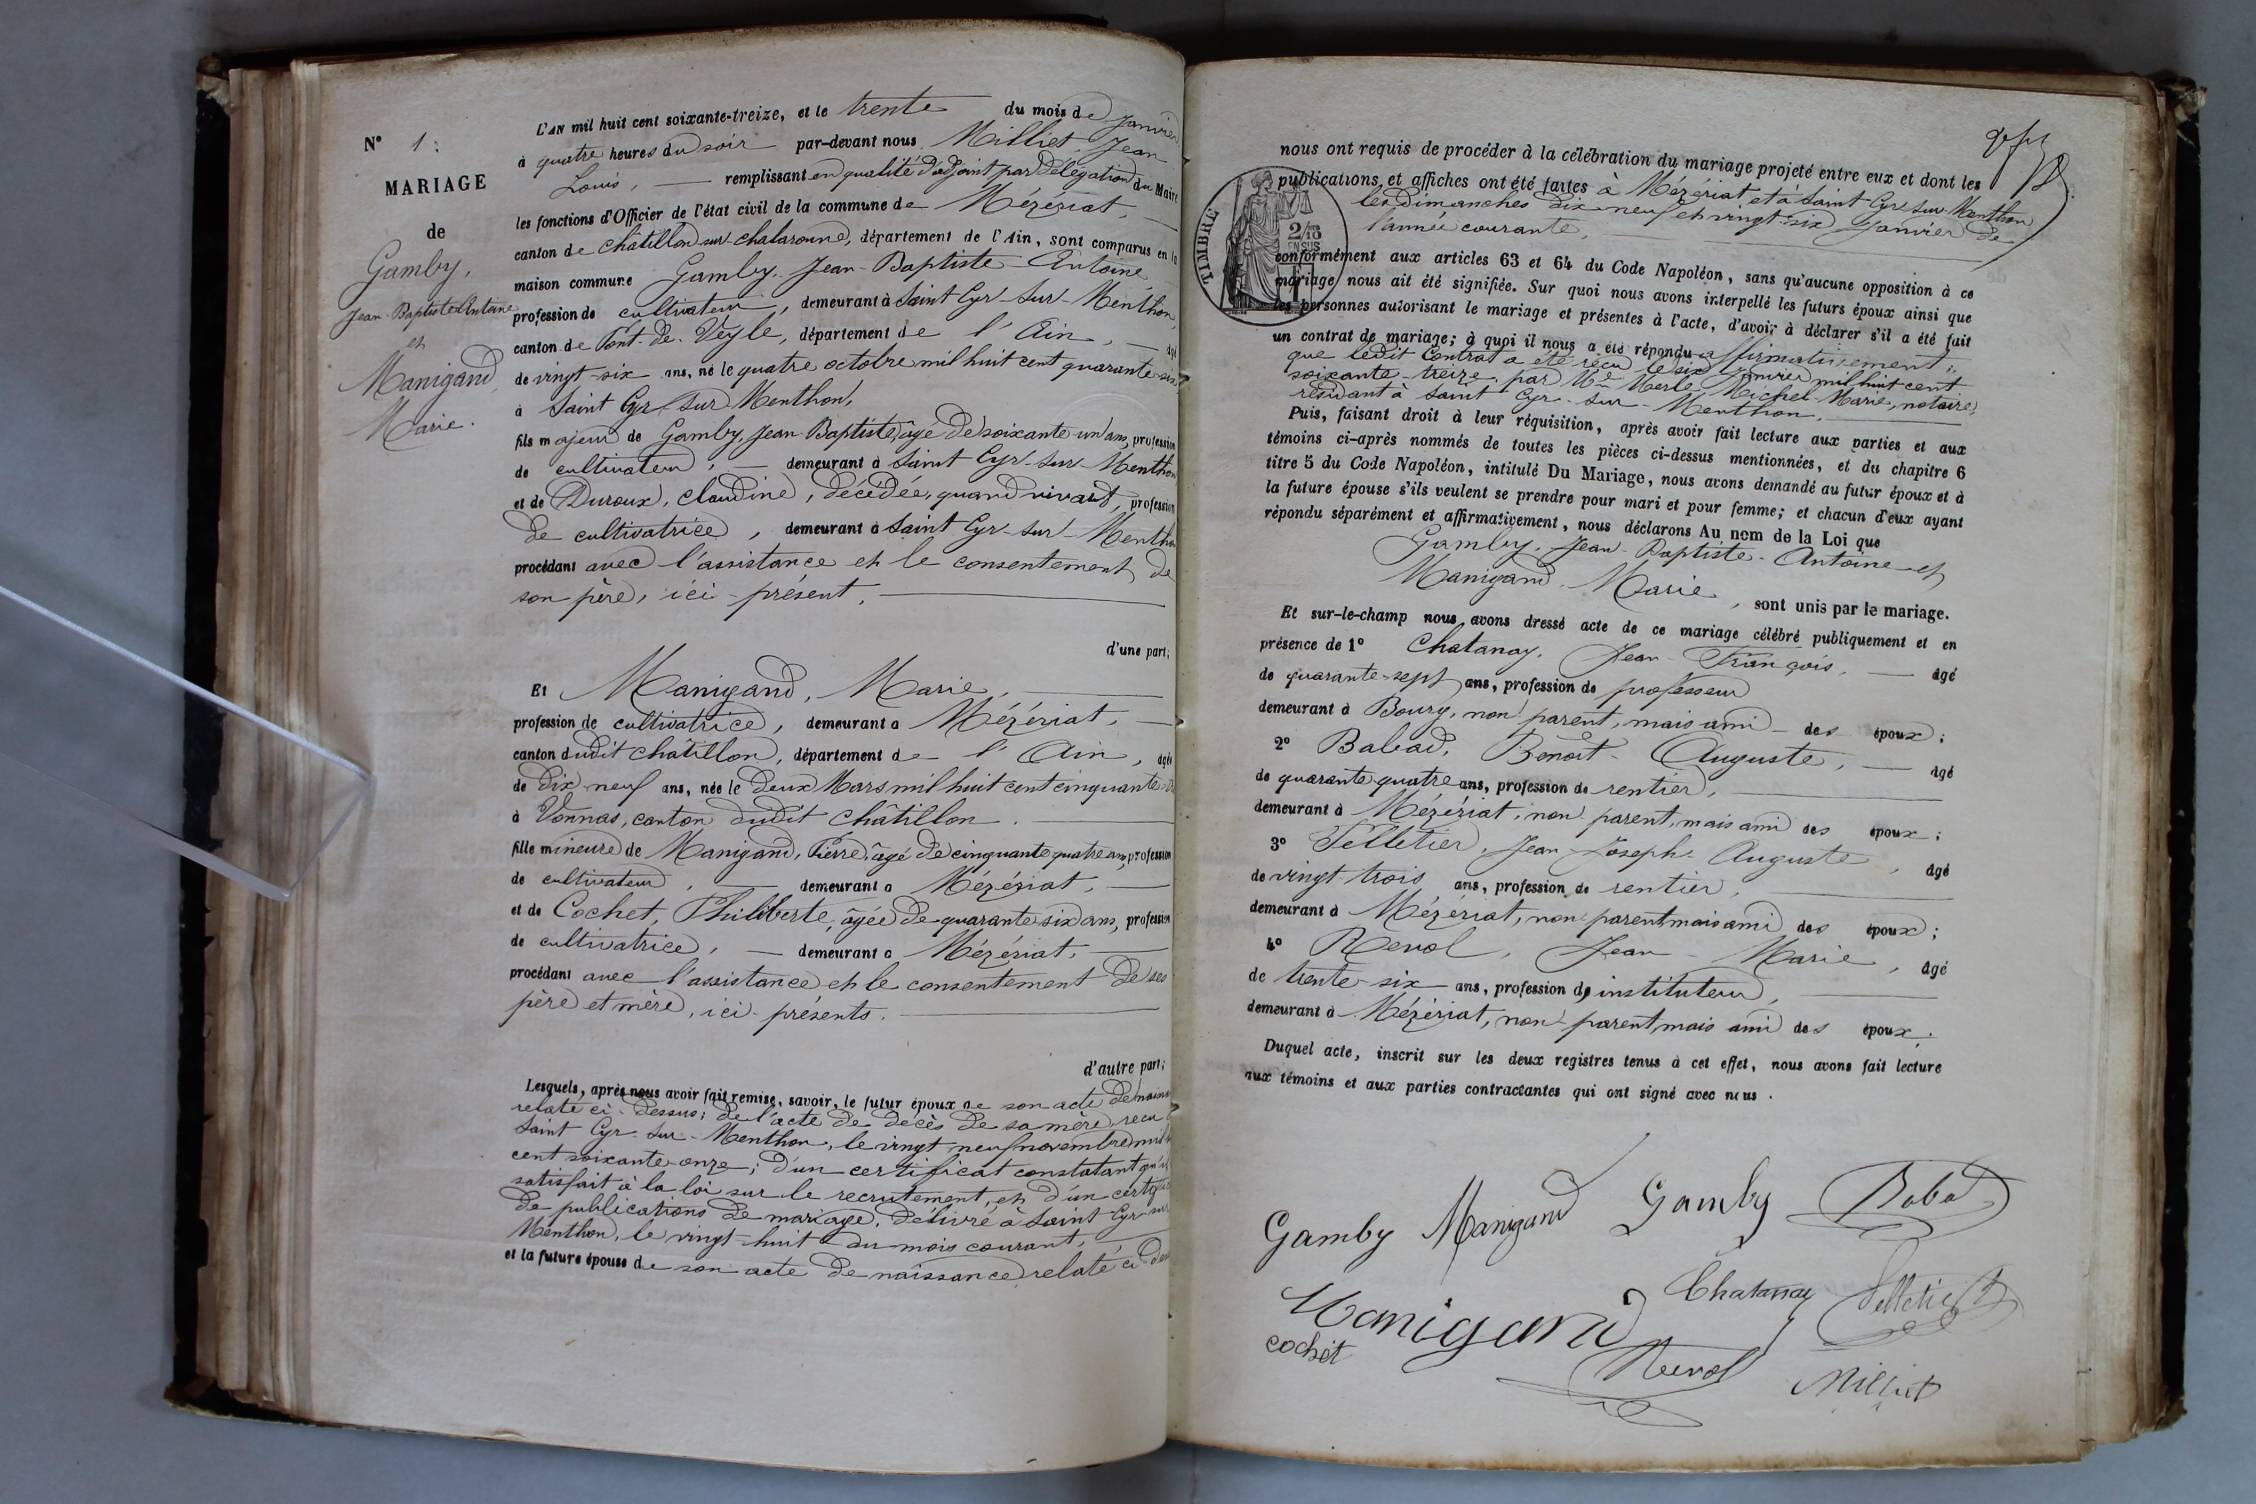 N° 1.
MARIAGE
de
Gamby,
Jean-Baptiste-Antoine
et
Manigand,
Marie.
L'AN mil huit cent soixante-treize, et le trente du mois de Janvier
à quatre heures du soir par-devant nous Milliet, Jean
Louis, remplissant en qualité d'adjoint par délégation du Maire
les fonctions d'Officier de l'état civil de la commune de Mézériat,
canton de Châtillon-sur-Chalaronne, département de l'Ain, sont comparus en la
maison commune Gamby, Jean-Baptiste-Antoine
profession de cultivateur, demeurant à Saint Cyr-sur-Menthon,
canton de Pont-de-Veyle, département de l'Ain, âgé
de vingt-six ans, né le quatre octobre mil huit cent quarante-six
à Saint Cyr-sur-Menthon,
fils majeur de Gamby, Jean-Baptiste, âgé de soixante-un ans, profession
de cultivateur, demeurant à Saint Cyr-sur-Menthon
et de Duroux, Claudine, décédée, quand vivait, profession
de cultivatrice, demeurant à Saint Cyr-sur-Menthon
procédant avec l'assistance et le consentement de
son père, ici-présent.
d'une part;
Et Manigand, Marie,
profession de cultivatrice, demeurant à Mézériat,
canton dudit Châtillon, département de l'Ain, âgée
de dix-neuf ans, née le deux Mars mil huit cent cinquante
à Vonnas, canton dudit Châtillon.
fille mineure de Manigand, Pierre, âgé de cinquante quatre ans, profession
de cultivateur, demeurant à Mézériat,
et de Cochet, Philiberte, âgée de quarante six ans, profession
de cultivatrice, demeurant à Mézériat,
procédant avec l'assistance et le consentement de ses
père et mère, ici-présents.
d'autre part;
Lesquels, après nous avoir fait remise, savoir, le futur époux de son acte de
relaté ci-dessus; de l'acte de décès de sa mère, reçu
Saint Cyr-sur-Menthon, le vingt neuf novembre mil
cent soixante-onze; d'un certificat constatant qu'il
satisfait à la loi sur le recrutement, et d'un
de publications de mariage, délivré à Saint-Cyr-sur
Menthon, le vingt-huit du mois courant,
et la future épouse de son acte de naissance relaté ci-
nous ont requis de procéder à la célébration du mariage projeté entre eux et dont les
publications et affiches ont été faites à Mézériat et à Saint Cyr-sur-Menthon
les Dimanches dix-neuf et vingt-six Janvier de
l'année courante,
TIMBRE
2/10
EN SUS
conformément aux articles 63 et 64 du Code Napoléon, sans qu'aucune opposition à ce
mariage nous ait été signifiée. Sur quoi nous avons interpellé les futurs époux ainsi que
les personnes autorisant le mariage et présentes à l'acte, d'avoir à déclarer s'il a été fait
un contrat de mariage; à quoi il nous a été répondu affirmativement;
que ledit Contrat a été reçu le six Janvier mil huit cent
soixante-treize, par Me Merle, Michel-Marie, notaire,
résidant à Saint Cyr-sur-Menthon.
Puis, faisant droit à leur réquisition, après avoir fait lecture aux parties et aux
témoins ci-après nommés de toutes les pièces ci-dessus mentionnées, et du chapitre 6
titre 5 du Code Napoléon, intitulé Du Mariage, nous avons demandé au futur époux et à
la future épouse s'ils veulent se prendre pour mari et pour femme; et chacun d'eux ayant
répondu séparément et affirmativement, nous déclarons Au nom de la Loi que
Gamby, Jean-Baptiste-Antoine et
Manigand, Marie, sont unis par le mariage.
Et sur-le-champ nous avons dressé acte de ce mariage célébré publiquement et en
présence de 1° Chatanay, Jean-François, âgé
de quarante-sept ans, profession de professeur
demeurant à Bourg, non parent, mais ami des époux;
2° Babad, Benoît-Auguste, âgé
de quarante quatre ans, profession de rentier,
demeurant à Mézériat, non parent, mais ami des époux;
3° Pelletier, Jean-Joseph-Auguste, âgé
de vingt-trois ans, profession de rentier,
demeurant à Mézériat, non parent, mais ami des époux;
4° Revol, Jean-Marie, âgé
de trente-six ans, profession d'instituteur,
demeurant à Mézériat, non parent, mais ami des époux.
Duquel acte, inscrit sur les deux registres tenus à cet effet, nous avons fait lecture
aux témoins et aux parties contractantes qui ont signé avec nous.
Gamby Manigand Gamby Babad
Manigand Chatanay Pelletier
cochet Revol Milliet